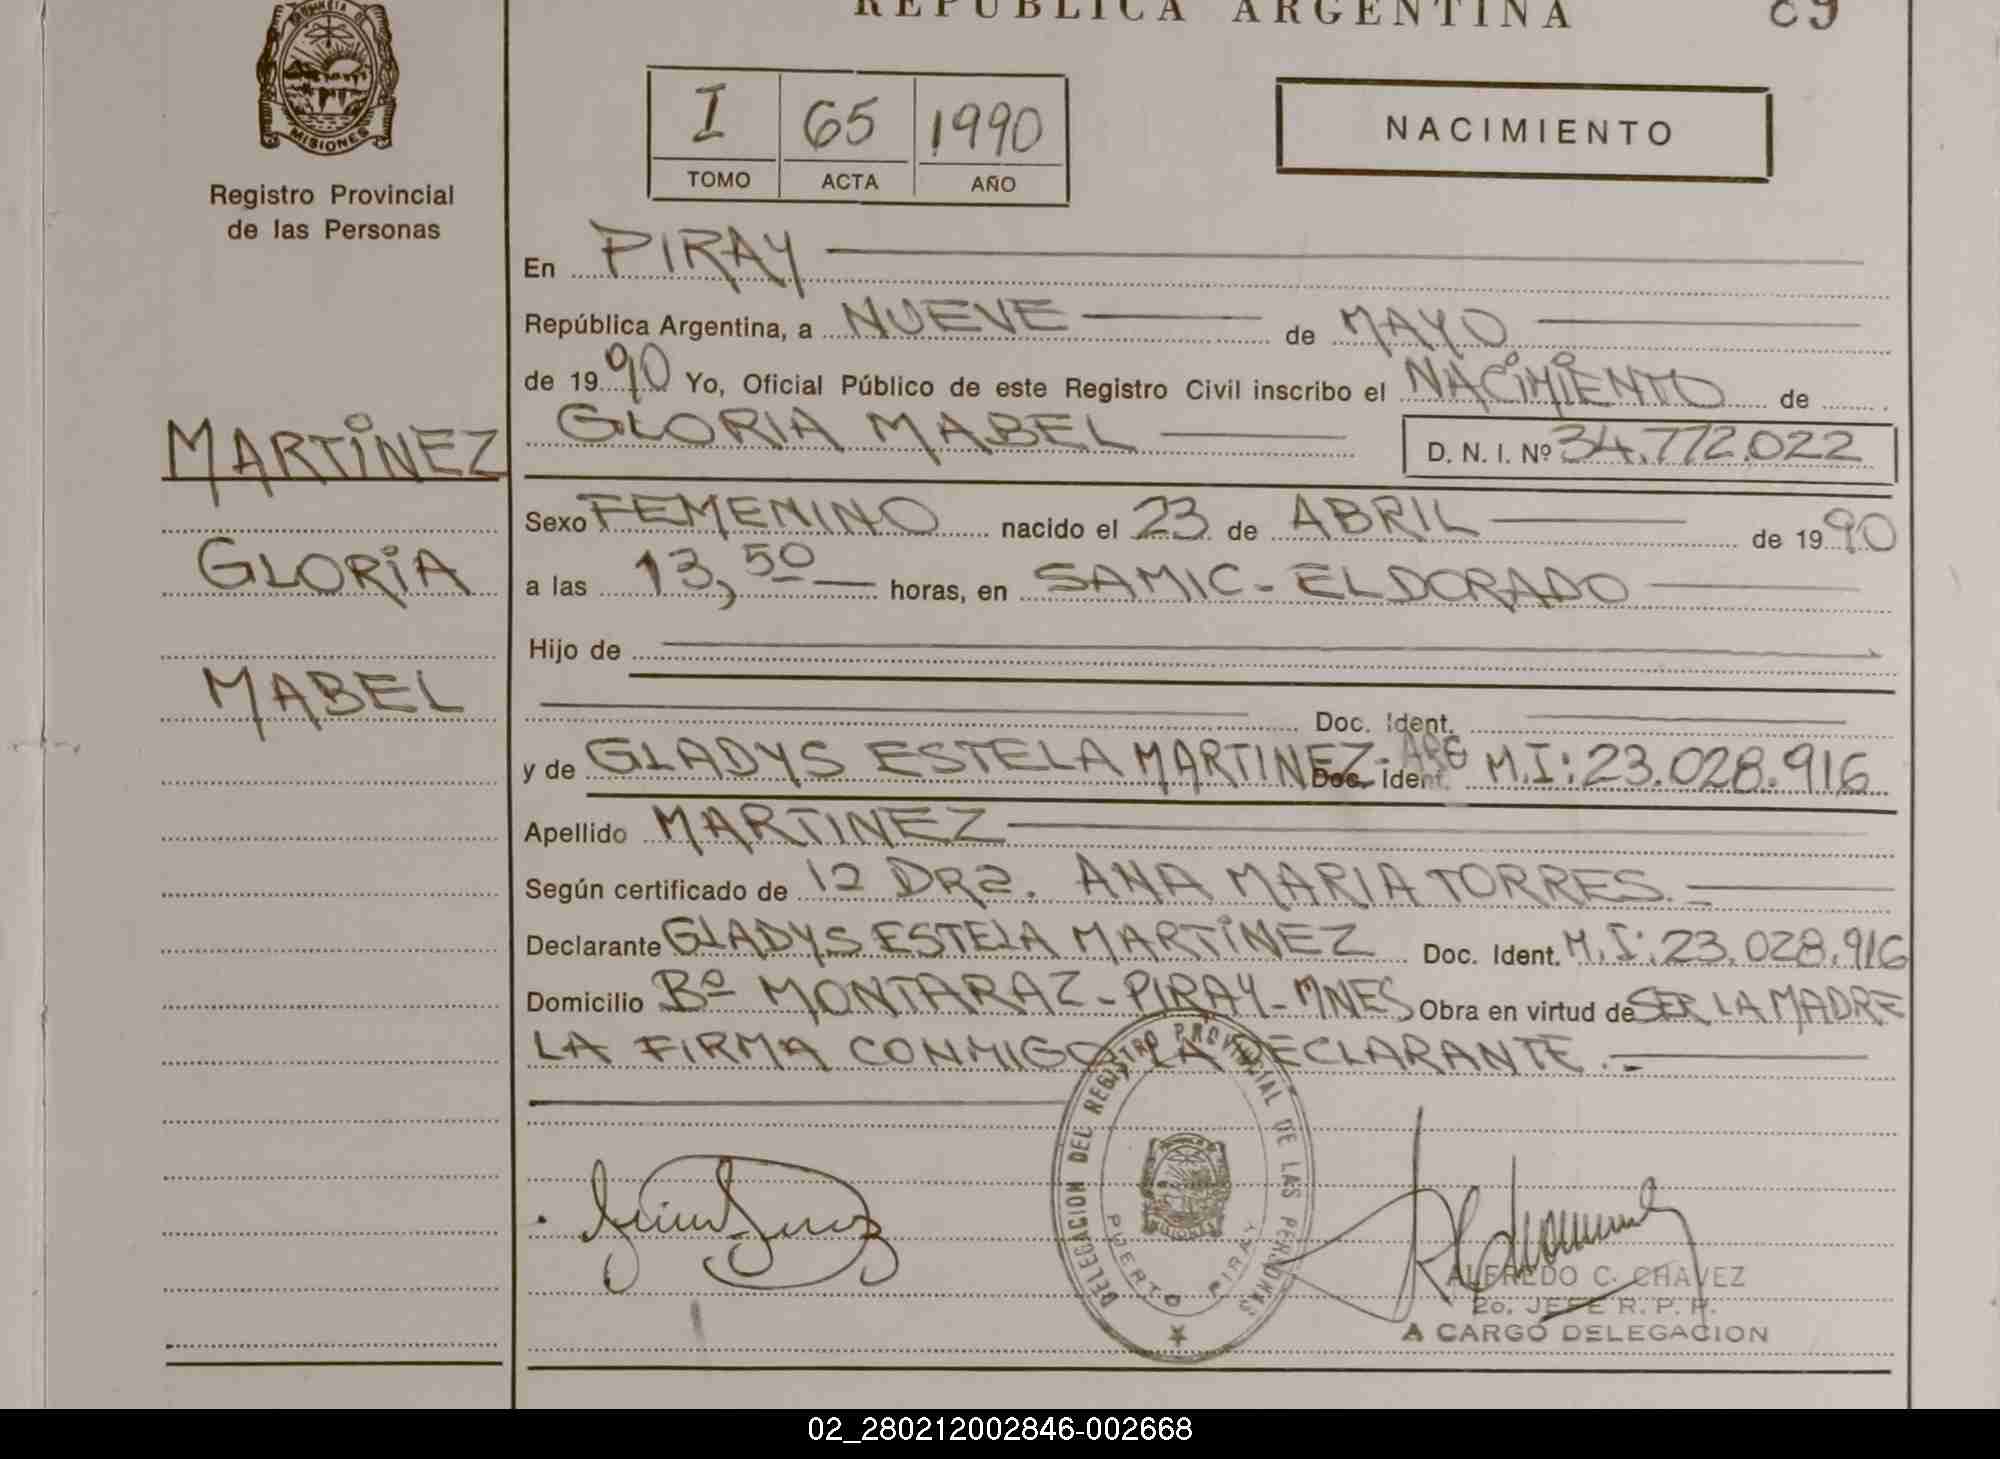 REPUBLICA ARGENTINA 89
PROVINCIA DE
MISIONES
Registro Provincial
de las Personas
I 65 1990
TOMO ACTA AÑO
NACIMIENTO
En PIRAY
República Argentina, a NUEVE de MAYO
de 1990 Yo, Oficial Público de este Registro Civil inscribo el NACIMIENTO de
MARTINEZ
GLORIA MABEL D. N. I. Nº 34.772.022
Sexo FEMENINO nacido el 23 de ABRIL de 1990
GLORIA
a las 13,50 horas, en SAMIC - ELDORADO
Hijo de
MABEL
Doc. Ident.
y de GLADYS ESTELA MARTINEZ - ARG Doc. Ident. M.I: 23.028.916
Apellido MARTINEZ
Según certificado de 12 DRa. ANA MARIA TORRES.-
Declarante GLADYS ESTELA MARTINEZ Doc. Ident. M.I: 23.028.916
Domicilio Bº MONTARAZ - PIRAY - MNES Obra en virtud de SER LA MADRE
LA FIRMA CONMIGO LA DECLARANTE.-
DELEGACION DEL REGISTRO PROVINCIAL DE LAS PERSONAS
MISIONES
PUERTO PIRAY
ALFREDO C. CHAVEZ
2o. JEFE R. P. P.
A CARGO DELEGACION
02_280212002846-002668